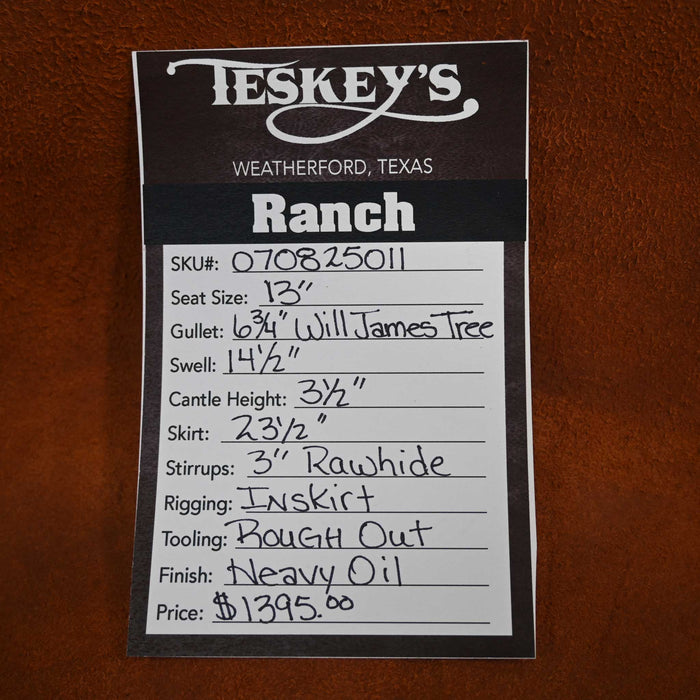 TESKEY'S
WEATHERFORD, TEXAS
Ranch
SKU#: 070825011
Seat Size: 13"
Gullet: 6¾" Will James Tree
Swell: 14½"
Cantle Height: 3½"
Skirt: 23½"
Stirrups: 3" Rawhide
Rigging: Inskirt
Tooling: ROUGH OUT
Finish: Heavy Oil
Price: $1395.00